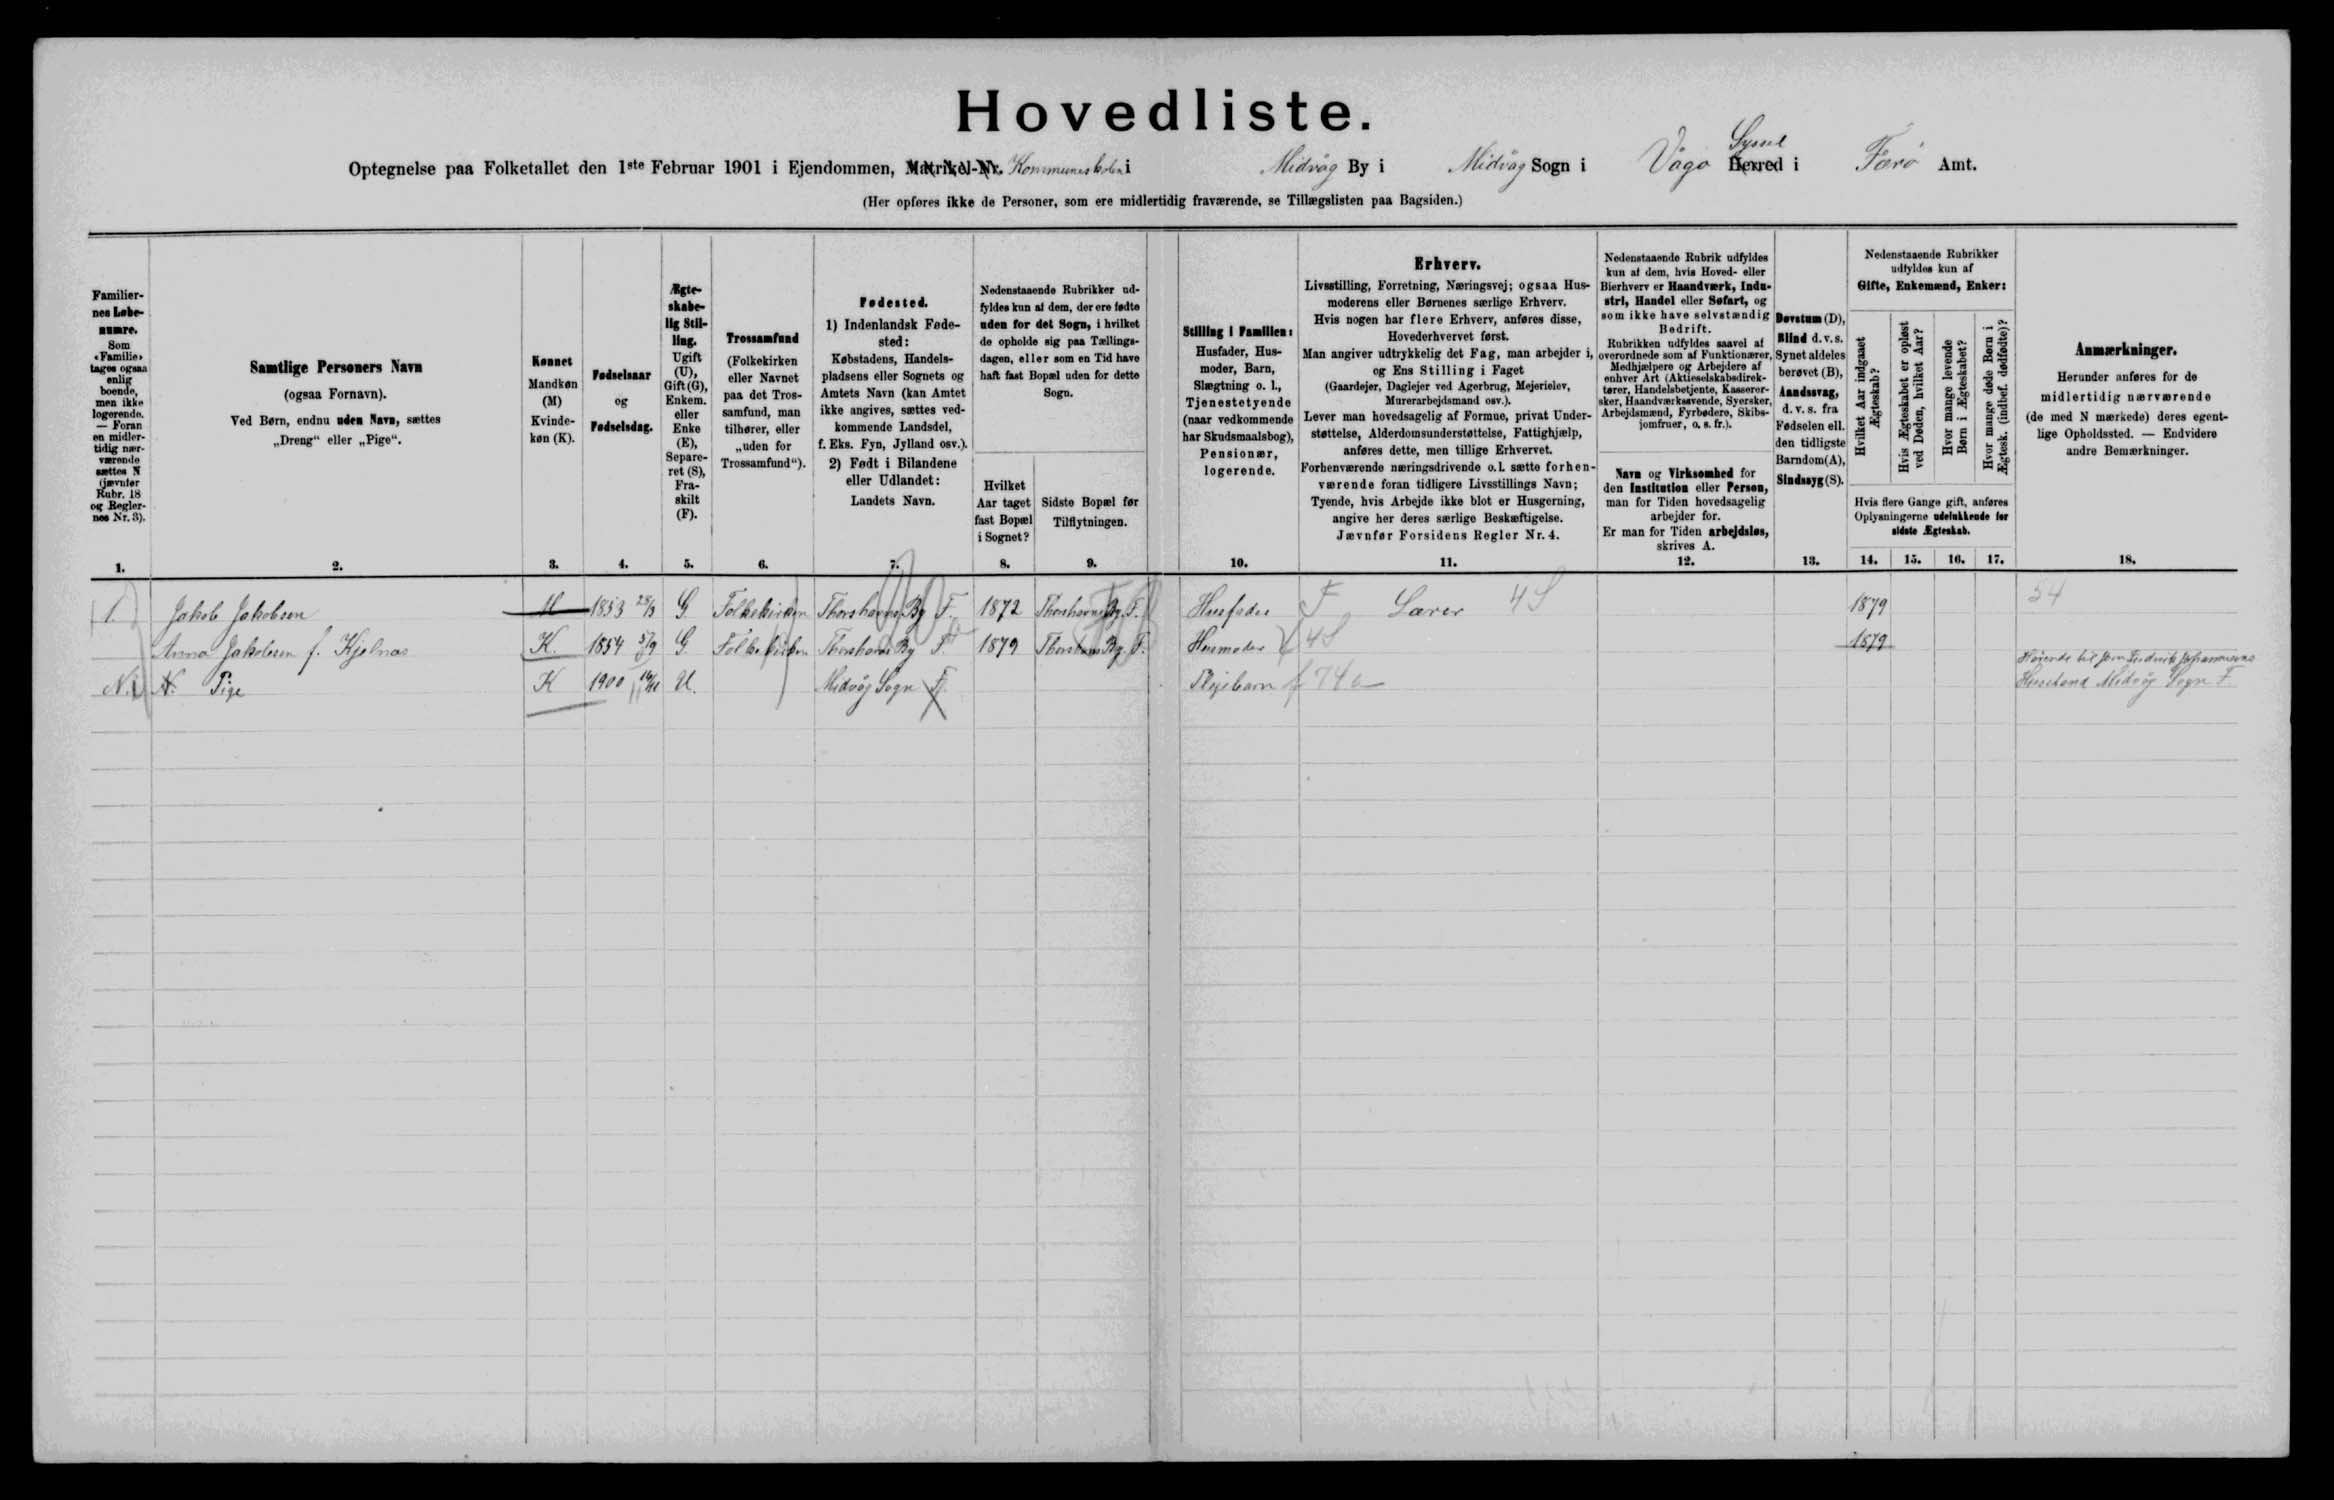 Hovedliste.
Optegnelse paa Folketallet den 1ste Februar 1901 i Ejendommen, Matrikel-Nr. Kommuneskolen i Midvåg By i Midvåg Sogn i Vågø Herred Syssel i Færø Amt.
(Her opføres ikke de Personer, som ere midlertidig fraværende, se Tillægslisten paa Bagsiden.)
Familier-
nes Løbe-
numre.
Som
«Familie»
tages ogsaa
enlig
boende,
men ikke
logerende.
— Foran
en midler-
tidig nær-
værende
sættes N
(jævnfør
Rubr. 18
og Regler-
nes Nr. 3).
1.
Samtlige Personers Navn
(ogsaa Fornavn).
Ved Børn, endnu uden Navn, sættes
„Dreng“ eller „Pige“.
2.
Kønnet
Mandkøn
(M)
Kvinde-
køn (K).
3.
Fødselsaar
og
Fødselsdag.
4.
Ægte-
skabe-
lig Stil-
ling.
Ugift
(U),
Gift (G),
Enkem.
eller
Enke
(E),
Separe-
ret (S),
Fra-
skilt
(F).
5.
Trossamfund
(Folkekirken
eller Navnet
paa det Tros-
samfund, man
tilhører, eller
„uden for
Trossamfund“).
6.
Fødested.
1) IndenlandskFøde-
sted:
Købstadens, Handels-
pladsens eller Sognets og
Amtets Navn (kan Amtet
ikke angives, sættes ved-
kommende Landsdel,
f. Eks. Fyn, Jylland osv.).
2) Født i Bilandene
eller Udlandet:
Landets Navn.
7.
Nedenstaaende Rubrikker ud-
fyldes kun af dem, der ere fødte
uden for det Sogn, i hvilket
de opholde sig paa Tællings-
dagen, eller som en Tid have
haft fast Bopæl uden for dette
Sogn.
Hvilket
Aar taget
fast Bopæl
i Sognet?
8.
Sidste Bopæl før
Tilflytningen.
9.
Stilling i Familien:
Husfader, Hus-
moder, Barn,
Slægtning o. l.,
Tjenestetyende
(naar vedkommende
har Skudsmaalsbog),
Pensionær,
logerende.
10.
Erhverv.
Livsstilling, Forretning, Næringsvej; ogsaa Hus-
moderens eller Børnenes særlige Erhverv.
Hvis nogen har flere Erhverv, anføres disse,
Hovederhvervet først.
Man angiver udtrykkelig det Fag, man arbejder i,
og Ens Stilling i Faget
(Gaardejer, Daglejer ved Agerbrug, Mejerielev,
Murerarbejdsmand osv.).
Lever man hovedsagelig af Formue, privat Under-
støttelse, Alderdomsunderstøttelse, Fattighjælp,
anføres dette, men tillige Erhvervet.
Forhenværende næringsdrivende o. l. sætte forhen-
værende foran tidligere Livsstillings Navn;
Tyende, hvis Arbejde ikke blot er Husgerning,
angive her deres særlige Beskæftigelse.
Jævnfør Forsidens Regler Nr. 4.
11.
Nedenstaaende Rubrik udfyldes
kun af dem, hvis Hoved- eller
Bierhverv er Haandværk, Indu-
stri, Handel eller Søfart, og
som ikke have selvstændig
Bedrift.
Rubrikken udfyldes saavel af
overordnede som af Funktionærer,
Medhjælpere og Arbejdere af
enhver Art (Aktieselskabsdirek-
tører, Handelsbetjente, Kasserer-
sker, Haandværkssvende, Syersker,
Arbejdsmænd, Fyrbødere, Skibs-
jomfruer, o. s. fr.).
Navn og Virksomhed for
den Institution eller Person,
man for Tiden hovedsagelig
arbejder for.
Er man for Tiden arbejdsløs,
skrives A.
12.
Døvstum (D),
Blind d. v. s.
Synet aldeles
berøvet (B),
Aandssvag,
d. v. s. fra
Fødselen ell.
den tidligste
Barndom(A),
Sindssyg (S).
13.
Nedenstaaende Rubrikker
udfyldes kun af
Gifte, Enkemænd, Enker:
Hvilket Aar indgaaet
Ægteskab?
Hvis Ægteskabet er opløst
ved Døden, hvilket Aar?
Hvor mange levende
Børn i Ægteskabet?
Hvor mange døde Børn i
Ægtesk. (indbef. dødfødte)?
Hvis flere Gange gift, anføres
Oplysningerne udelukkende for
sidste Ægteskab.
14. 15. 16. 17.
Anmærkninger.
Herunder anføres for de
midlertidig nærværende
(de med N mærkede) deres egent-
lige Opholdssted. — Endvidere
andre Bemærkninger.
18.
1. Jakob Jakobsen M 1853 28/3 G Folkekirken Thorshavns By F. 1872 Thorshavns By F. Husfader F Lærer 4 S 1879 54
Anna Jakobsen f. Kjølnæs K. 1854 5/9 G. Folkekirken Thorshavns By F 1879 Thorshavns By F. Husmoder 4 S 1879
N. 1 N. Pige K 1900 U. Midvåg Sogn F. Plejebarn f 74 a Hørende til Johannesens
Husstand Midvåg Sogn F.